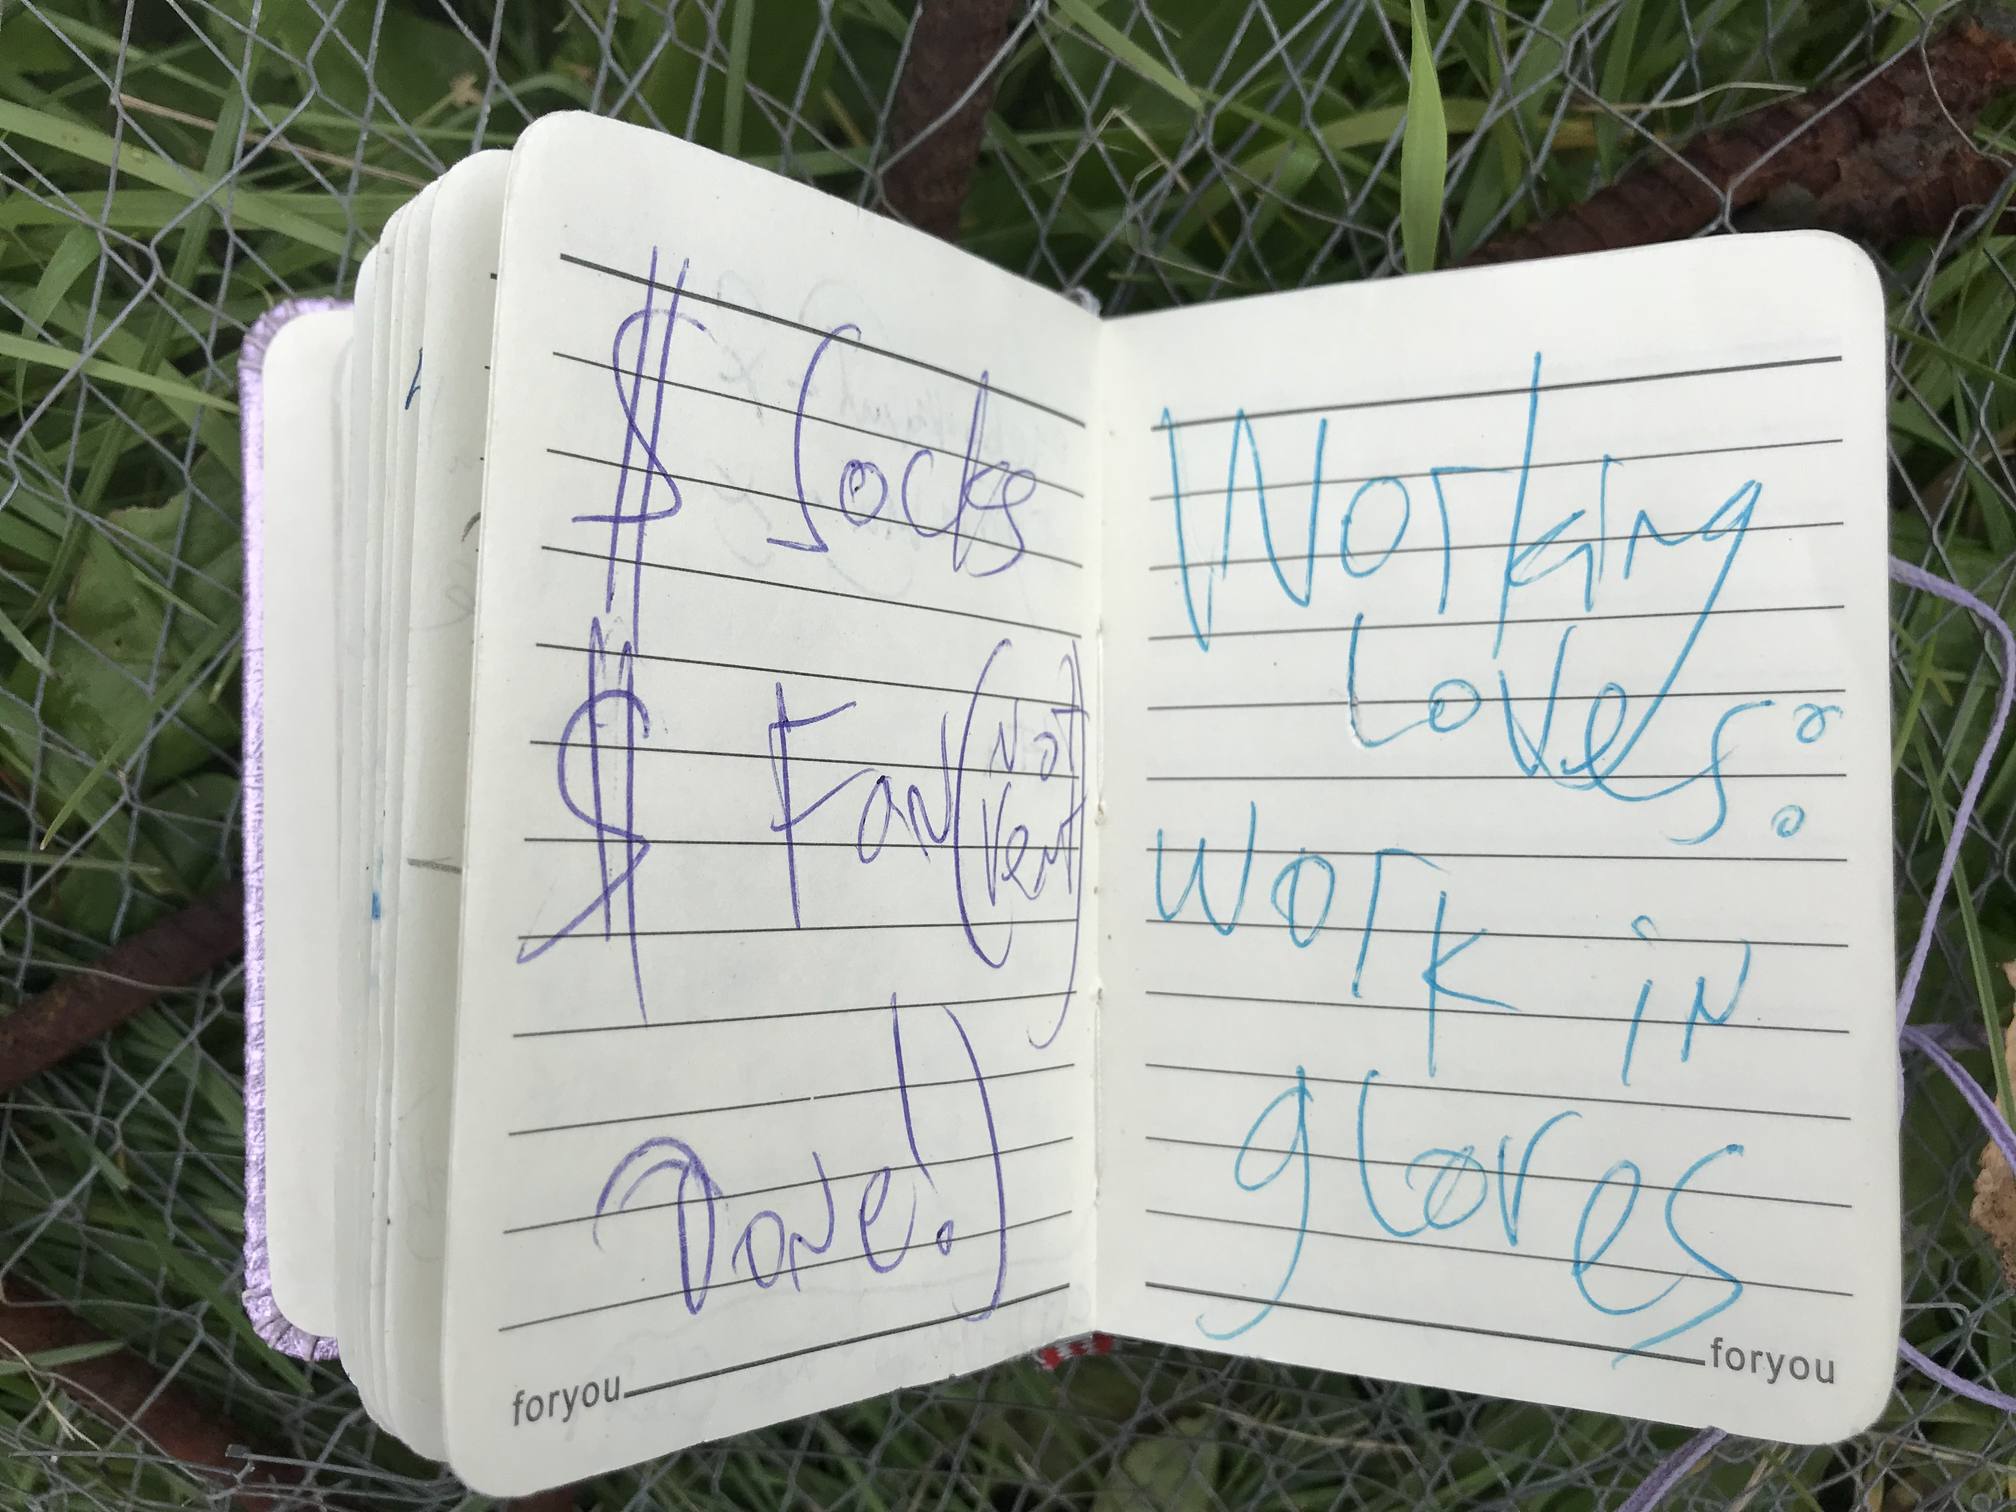 $ Socks
$ Fan (Not
Vent)
Done!)
foryou
Working
Loves:
Work in
gloves
foryou